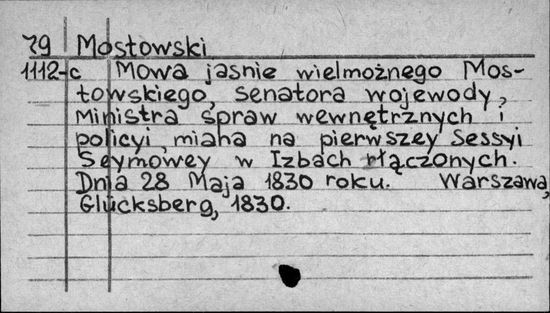 29 Mostowski
1112-c Mowa jasnie wielmożnego Mos-
towskiego, senatora wojewody,
Ministra spraw wewnętrznych i
policyi, miana na pierwszey Sessyi
Seymowey w Izbach złączonych.
Dnia 28 Maja 1830 roku. Warszawa,
Glücksberg, 1830.